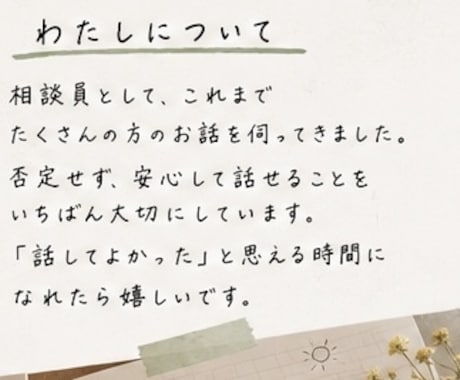 わたしについて
相談員として、これまで
たくさんの方のお話を伺ってきました。
否定せず、安心して話せることを
いちばん大切にしています。
「話してよかった」と思える時間に
なれたら嬉しいです。